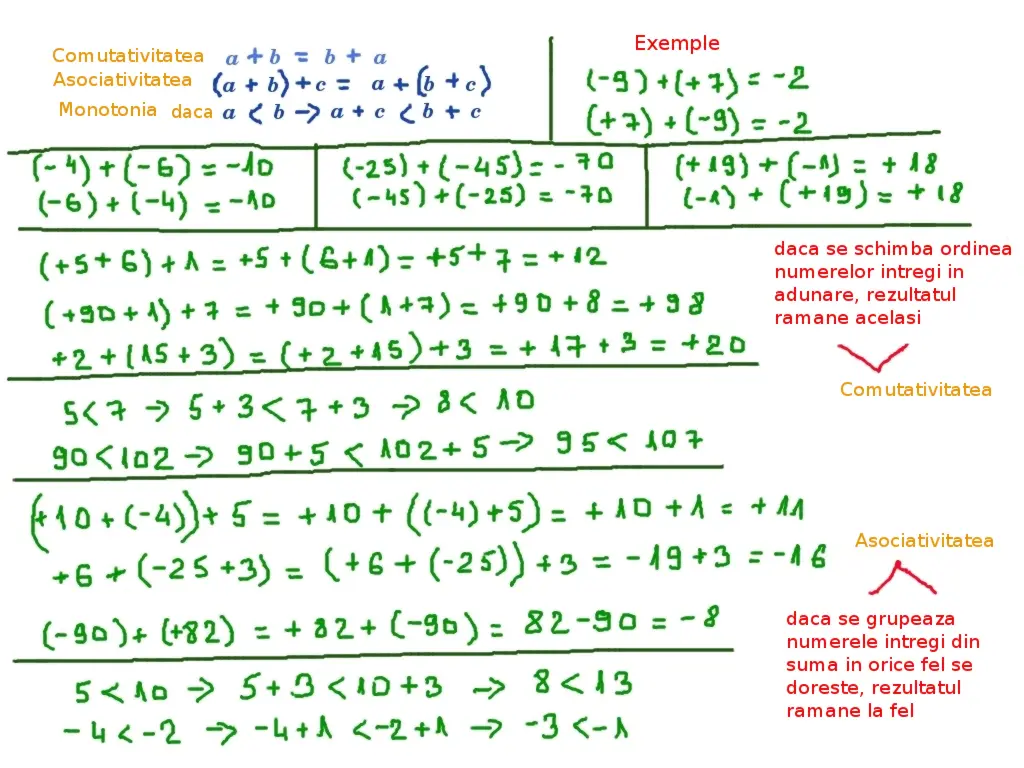 Comutativitatea a + b = b + a
Asociativitatea (a + b) + c = a + (b + c)
Monotonia daca a < b -> a + c < b + c
Exemple
(-9) + (+7) = -2
(+7) + (-9) = -2
(-4) + (-6) = -10
(-6) + (-4) = -10
(-25) + (-45) = -70
(-45) + (-25) = -70
(+19) + (-1) = +18
(-1) + (+19) = +18
(+5+6)+1 = +5+(6+1) = +5+7 = +12
(+90+1)+7 = +90+(1+7) = +90+8 = +98
+2+(15+3) = (+2+15)+3 = +17+3 = +20
daca se schimba ordinea
numerelor intregi in
adunare, rezultatul
ramane acelasi
Comutativitatea
5<7 -> 5+3<7+3 -> 8<10
90<102 -> 90+5<102+5 -> 95<107
(+10+(-4))+5 = +10+((-4)+5) = +10+1 = +11
+6+(-25+3) = (+6+(-25))+3 = -19+3 = -16
(-90)+(+82) = +82+(-90) = 82-90 = -8
Asociativitatea
daca se grupeaza
numerele intregi din
suma in orice fel se
doreste, rezultatul
ramane la fel
5<10 -> 5+3<10+3 -> 8<13
-4<-2 -> -4+1<-2+1 -> -3<-1